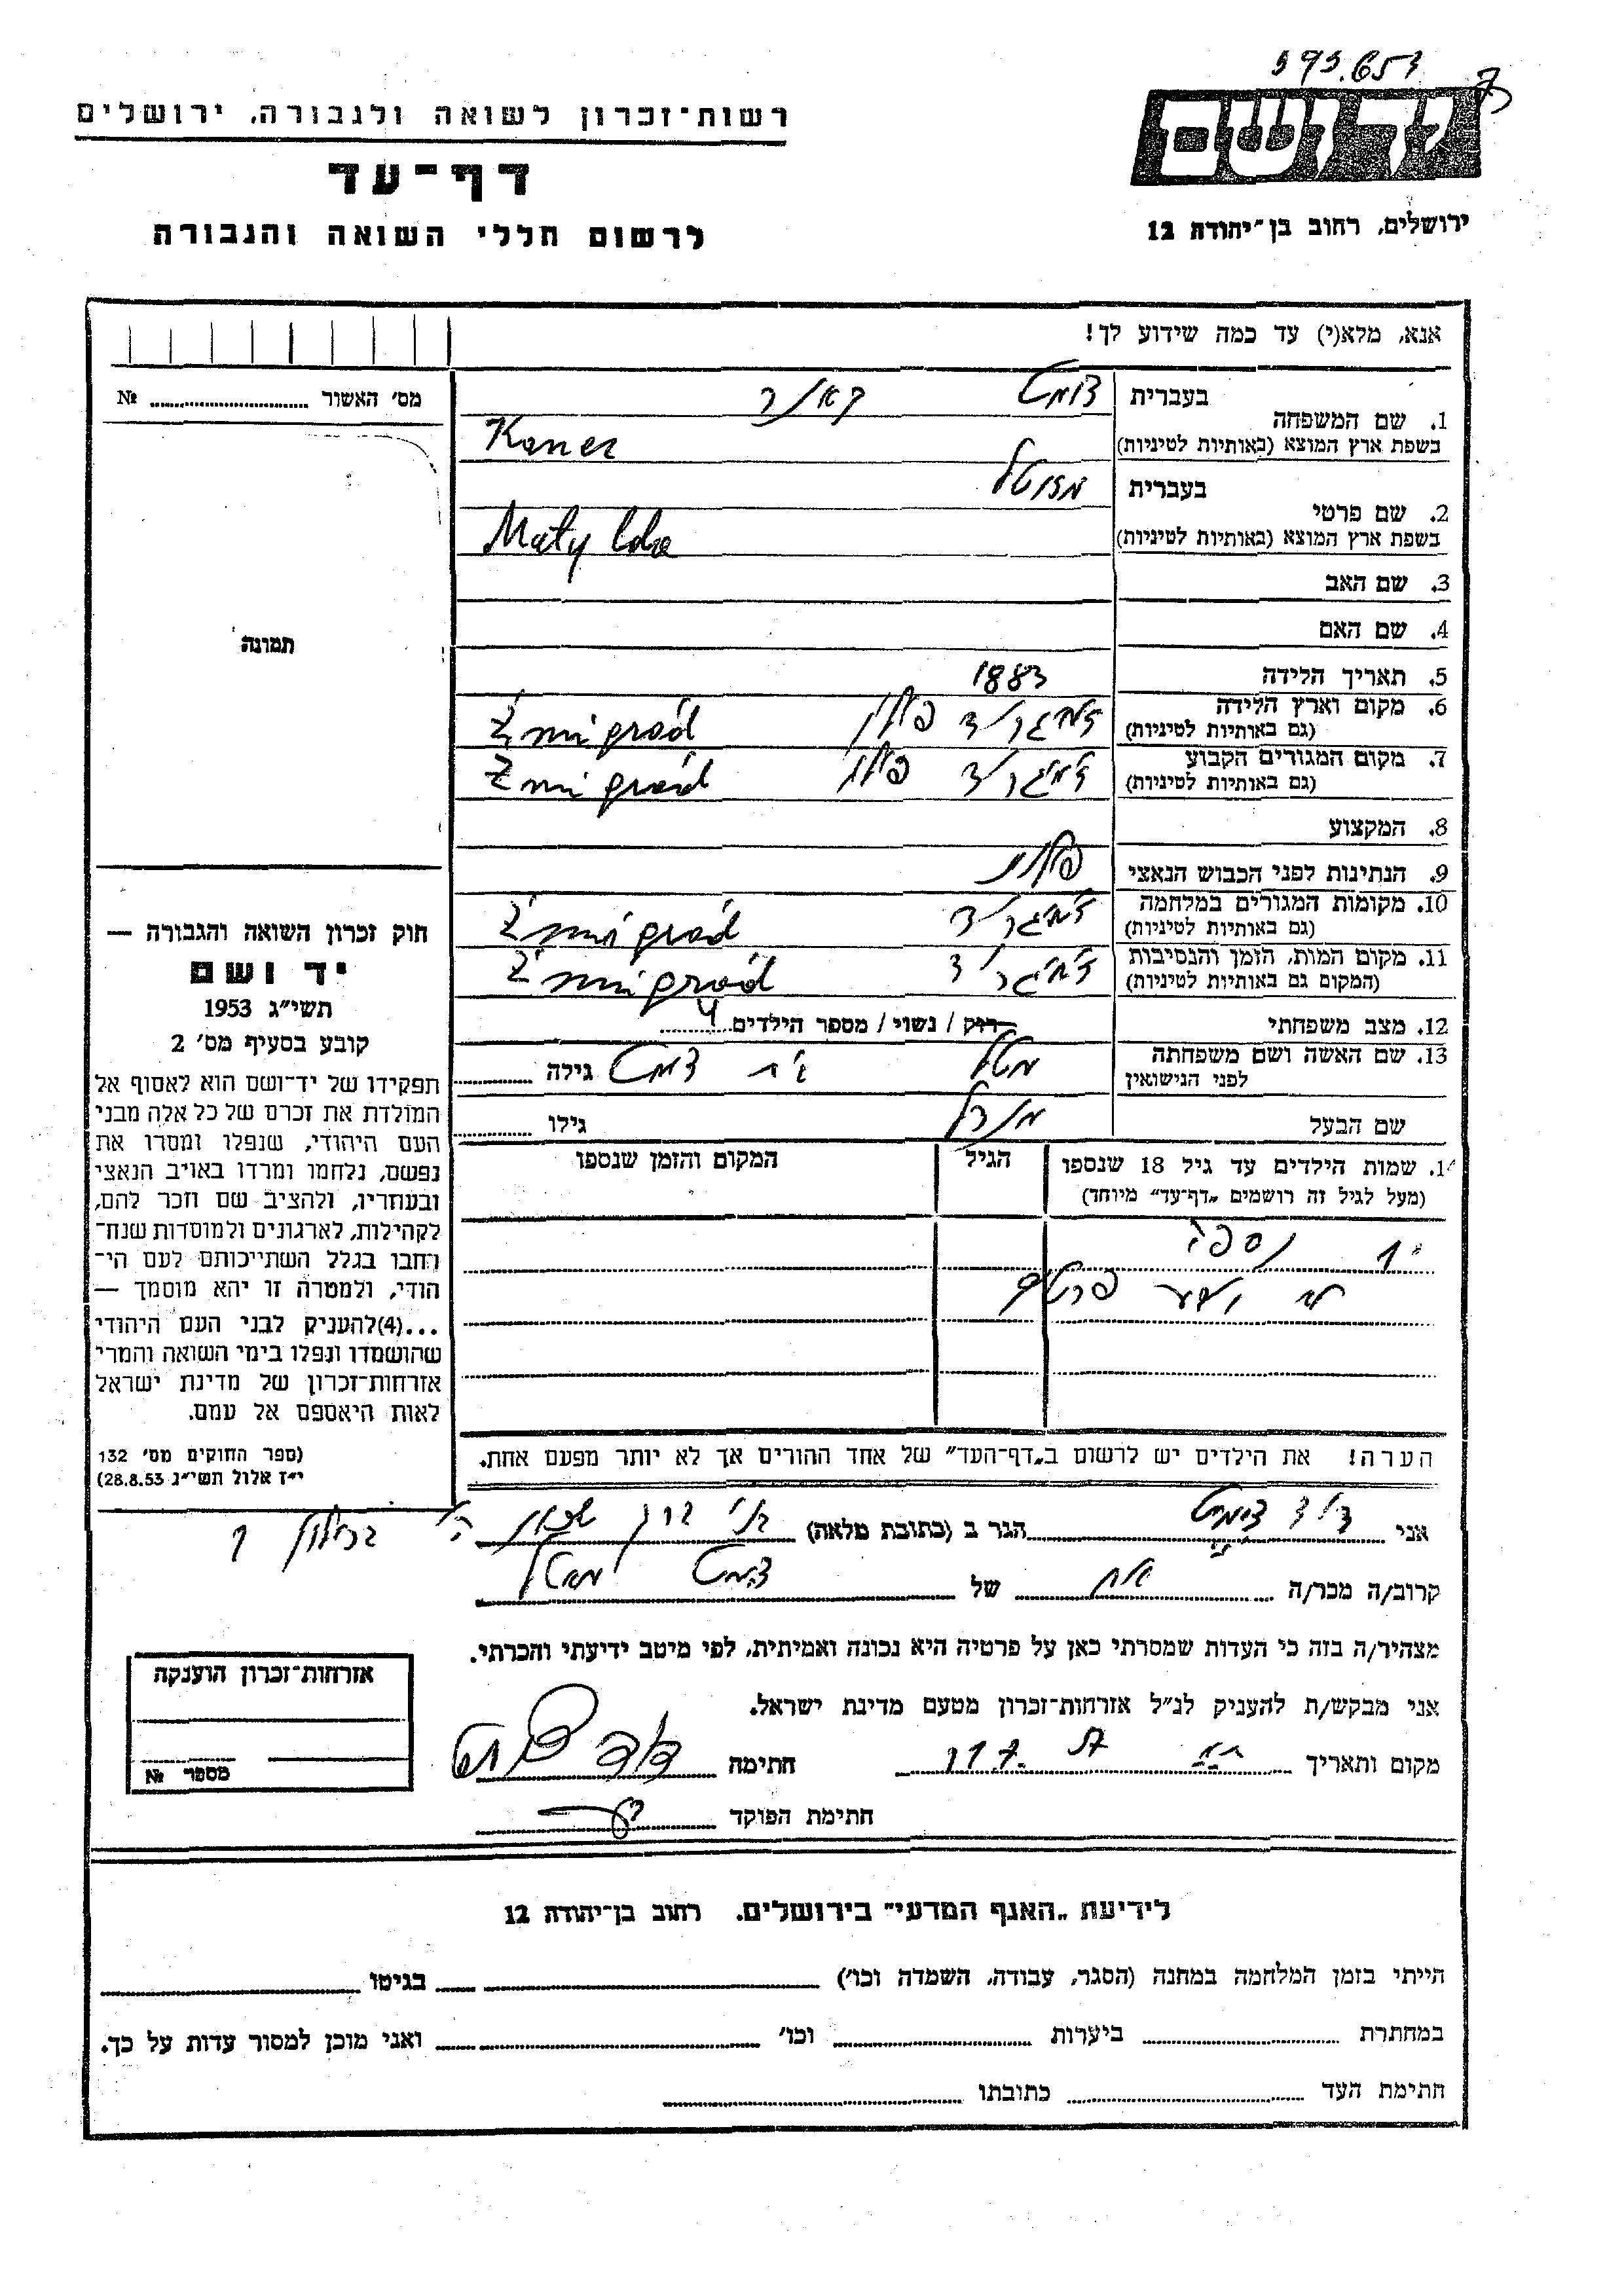 393.653
יד ושם
ירושלים, רחוב בן־יהודה 12
רשות־זכרון לשואה ולגבורה, ירושלים
דף־עד
לרשום חללי השואה והגבורה
אנא, מלא(י) עד כמה שידוע לך!
מס' האשור № ........
תמונה
1. שם המשפחה
בעברית קאנר
בשפת ארץ המוצא (באותיות לטיניות) Kaner
2. שם פרטי
בעברית
בשפת ארץ המוצא (באותיות לטיניות) Matylda
3. שם האב
4. שם האם
5. תאריך הלידה 1883
6. מקום וארץ הלידה פולין Żmigród
(גם באותיות לטיניות)
7. מקום המגורים הקבוע פולין Żmigród
(גם באותיות לטיניות)
8. המקצוע
9. הנתינות לפני הכבוש הנאצי פולנית
10. מקומות המגורים במלחמה Żmigród
(גם באותיות לטיניות)
11. מקום המות, הזמן והנסיבות Żmigród
(המקום גם באותיות לטיניות)
12. מצב משפחתי רוק / נשוי / מספר הילדים 4
13. שם האשה ושם משפחתה
לפני הנישואין גילה ........
שם הבעל גילו ........
14. שמות הילדים עד גיל 18 שנספו הגיל המקום והזמן שנספו
(מעל לגיל זה רושמים „דף־עד” מיוחד)
1 נספה
לא יודע פרטים
הערה! את הילדים יש לרשום ב„דף־העד” של אחד ההורים אך לא יותר מפעם אחת.
חוק זכרון השואה והגבורה —
יד ושם
תשי״ג 1953
קובע בסעיף מס' 2
תפקידו של יד־ושם הוא לאסוף אל
המולדת את זכרם של כל אלה מבני
העם היהודי, שנפלו ומסרו את
נפשם, נלחמו ומרדו באויב הנאצי
ובעוזריו, ולהציב שם וזכר להם,
לקהילות, לארגונים ולמוסדות שנח־
רחבו בגלל השתייכותם לעם הי־
הודי, ולמטרה זו יהא מוסמך —
...(4)להעניק לבני העם היהודי
שהושמדו ונפלו בימי השואה והמרי
אזרחות־זכרון של מדינת ישראל
לאות היאספם אל עמם.
(ספר החוקים מס' 132
י״ז אלול תשי״ג 28.8.53)
אני דוד הגר ב (כתובת מלאה) בני ברק שכון
קרוב/ה מכר/ה אח של
מצהיר/ה בזה כי העדות שמסרתי כאן על פרטיה היא נכונה ואמיתית, לפי מיטב ידיעתי והכרתי.
אני מבקש/ת להעניק לנ״ל אזרחות־זכרון מטעם מדינת ישראל.
מקום ותאריך חתימה דוד
חתימת הפוקד
אזרחות־זכרון הוענקה
מספר №
לידיעת „האגף המדעי” בירושלים. רחוב בן־יהודה 12
הייתי בזמן המלחמה במחנה (הסגר, עבודה, השמדה וכו') ........ בגיטו ........
במחתרת ........ ביערות ........ וכו' ........ ואני מוכן למסור עדות על כך.
חתימת העד ........ כתובתו ........